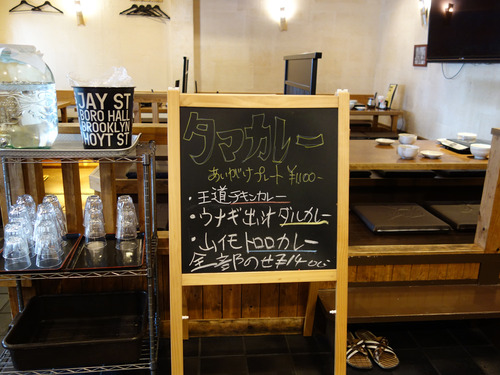 JAY ST
BORO HALL
BROOKLYN
HOYT ST
タマカレー
あいがけプレート ¥1100-
・王道チキンカレー
・ウナギ出汁ダルカレー
・山イモトロロカレー
全部のせ ¥1400